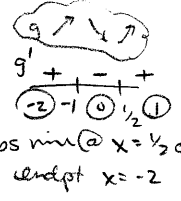 g ↗ ↘ ↗
g' + - +
-2 -1 0 1/2 1
min @ x = 1/2
endpt x = -2